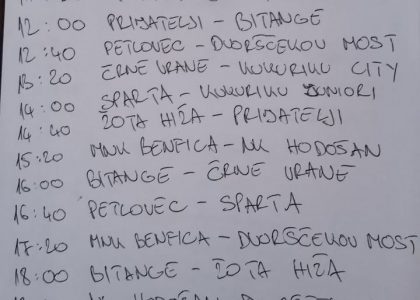 12:00 PRIJATELJI - BITANGE
12:40 PETLOVEC - DVORŠĆEKOV MOST
13:20 ČRNE VRANE - KUKURIKU CITY
14:00 SPARTA - KUKURIKU JUNIORI
14:40 ŽOTA HIŽA - PRIJATELJI
15:20 MNK BENFICA - NK HODOŠAN
16:00 BITANGE - ČRNE VRANE
16:40 PETLOVEC - SPARTA
17:20 MNK BENFICA - DVORŠĆEKOV MOST
18:00 BITANGE - ŽOTA HIŽA